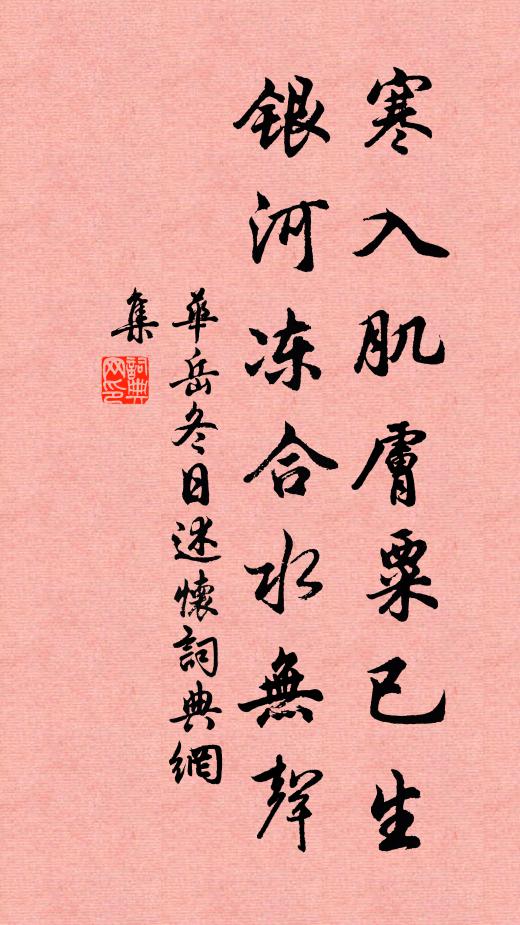 寒入肌膚粟已生
銀河冻合水無聲
華岳冬日述懷詞典網
集
詞典
网印